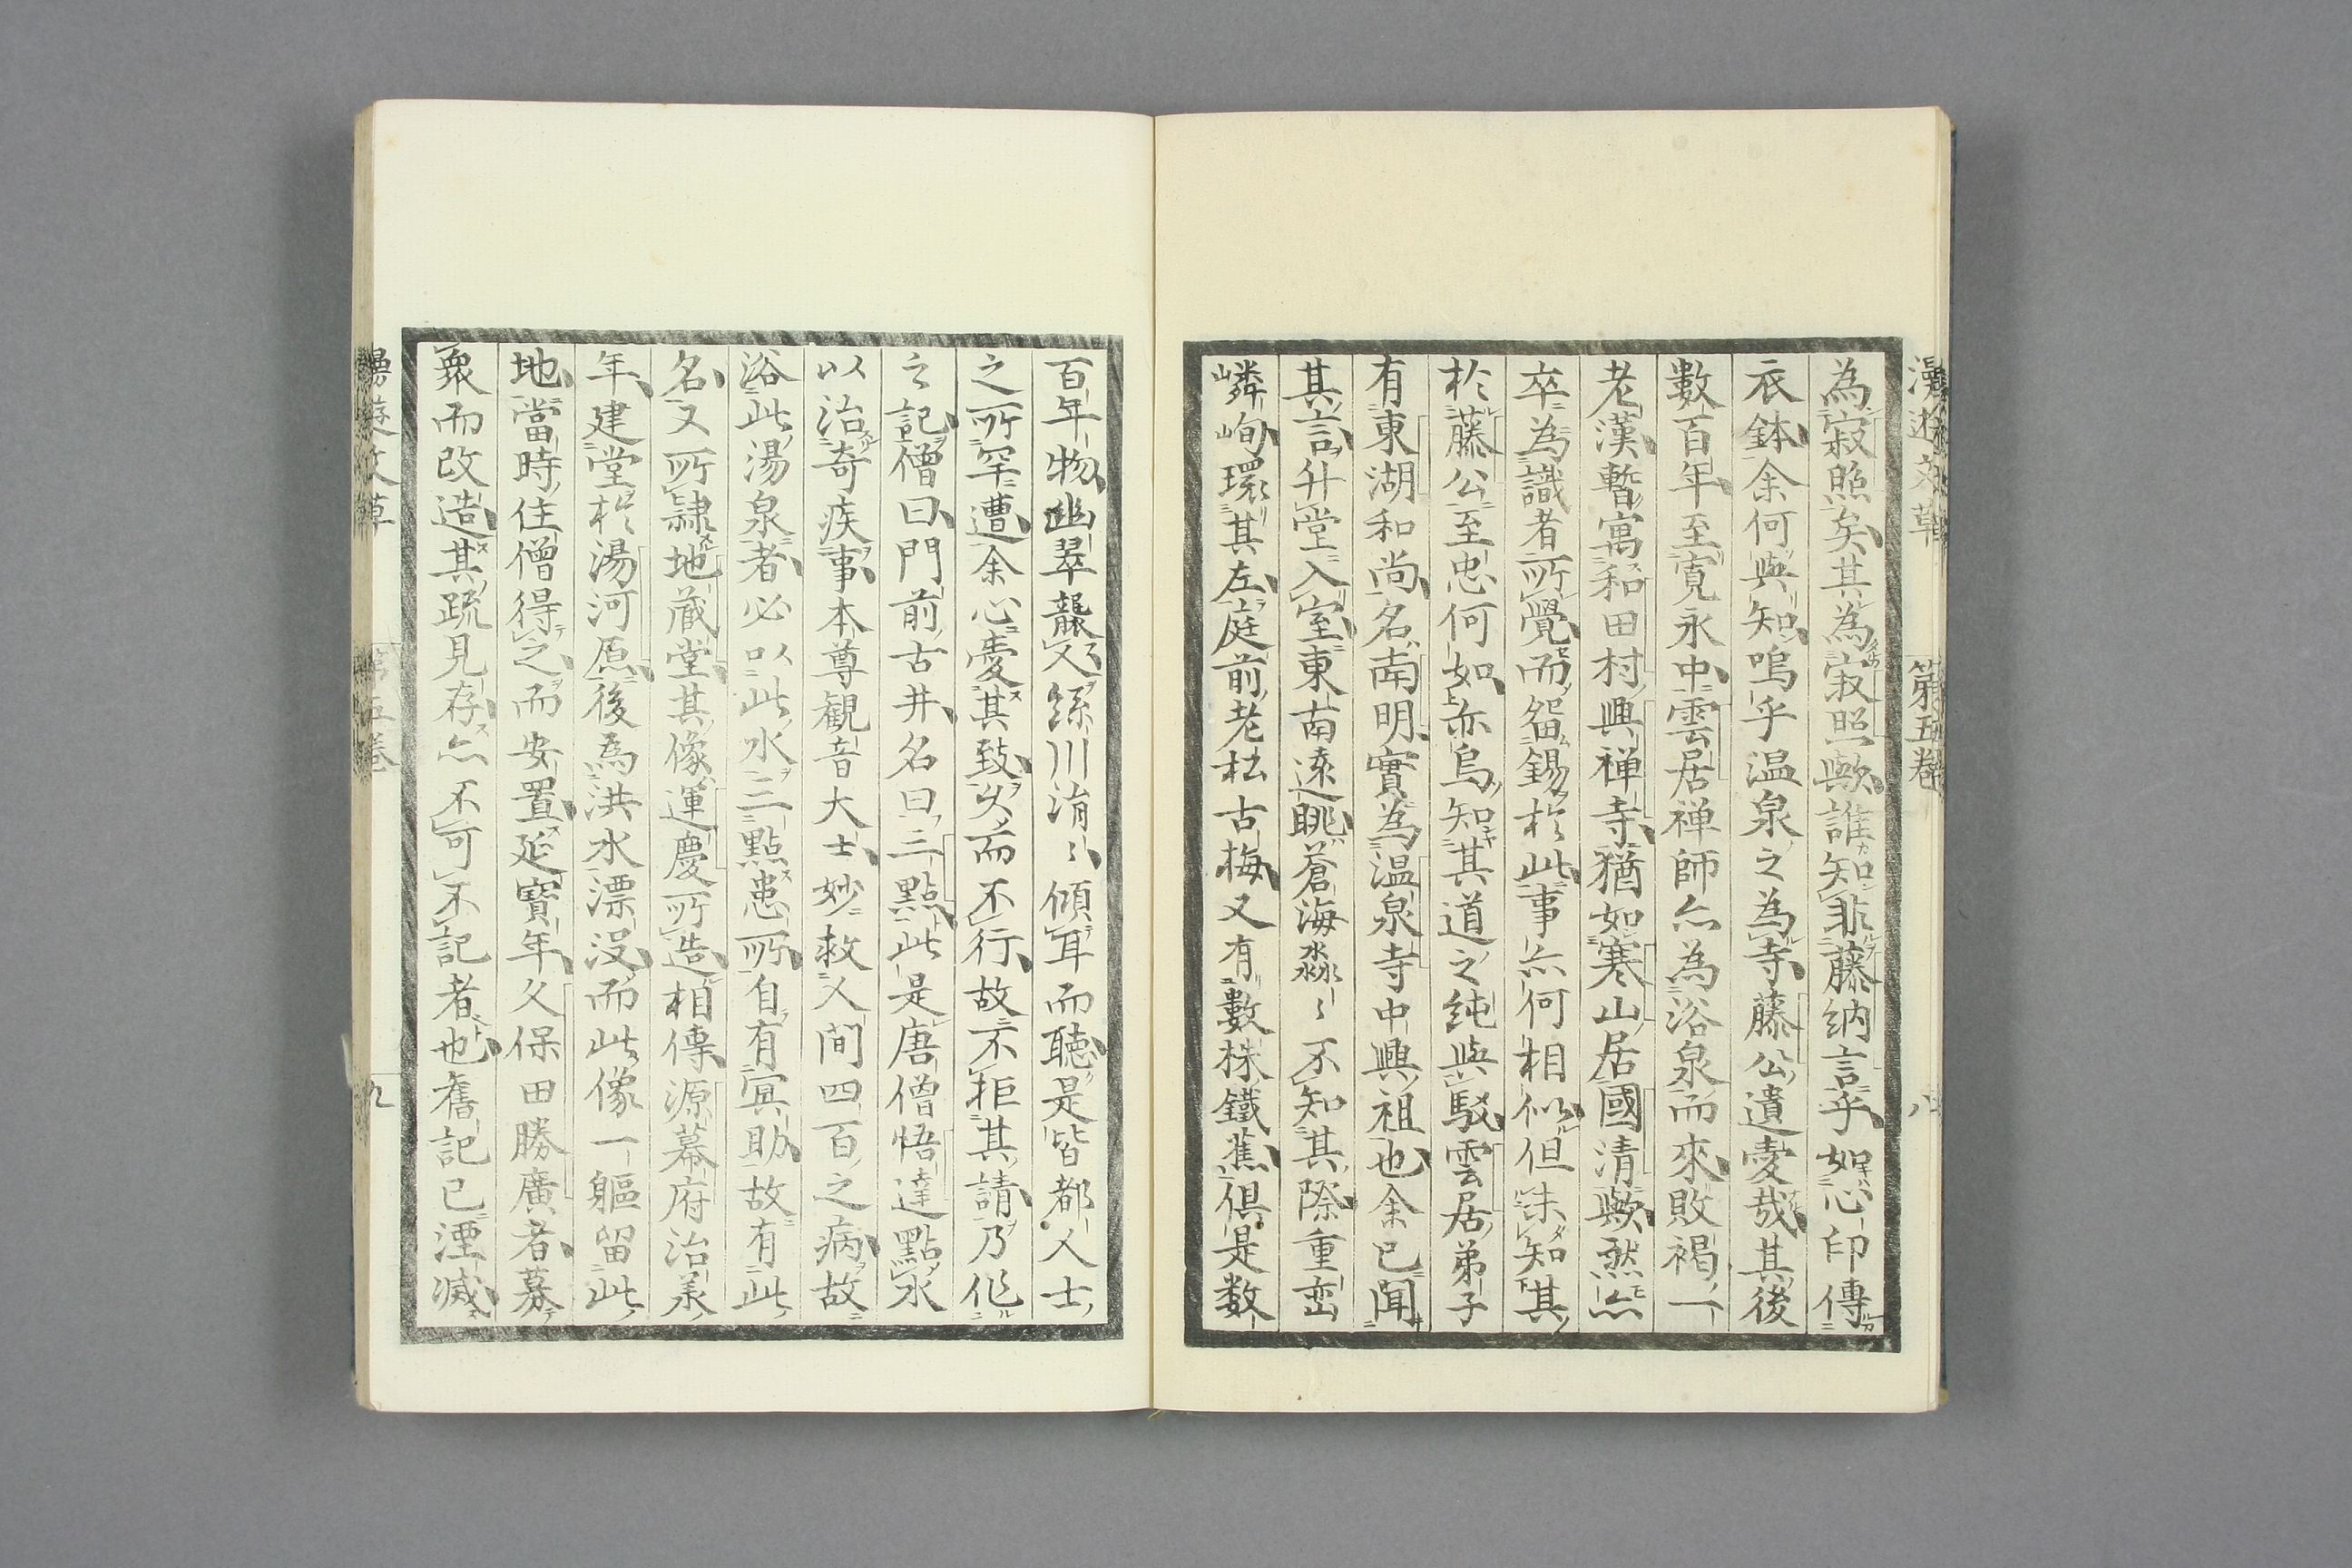 漫遊文草 第五巻 八
為寂照矣其為寂照歟誰知非藤納言乎如心印傳
衣鉢余何與知嗚乎温泉之為寺藤公遺愛哉其後
數百年至寛永中雲居禅師亦為浴泉而來敗褐一
老漢暫寓和田村興禅寺猶如寒山居國清歟然亦
卒為識者所覺而留錫於此事亦何相似但未知其
於藤公至忠何如亦烏知其道之純與駁雲居弟子
有東湖和尚名南明實為温泉寺中興祖也余已聞
其言升堂入室東南遠眺蒼海淼々不知其際重巒
嶙峋環其左庭前老松古梅又有數株鐵蕉俱是数
百年物幽翠襲人繇川涓々傾耳而聽是皆都人士
之所罕遭余心愛其致久而不行故不拒其請乃作
之記僧曰門前古井名曰三點此是唐僧悟達點水
以治奇疾事本尊観音大士妙救人間四百之病故
浴此湯泉者必以此水三點患所自有冥助故有此
名又所隷地蔵堂其像運慶所造相傳源幕府治羕
年建堂於湯河原後為洪水漂没而此像一軀留此
地當時住僧得之而安置延寶年久保田勝廣者募
衆而改造其疏見存亦不可不記者也舊記已湮滅
漫遊文草 第五巻 九